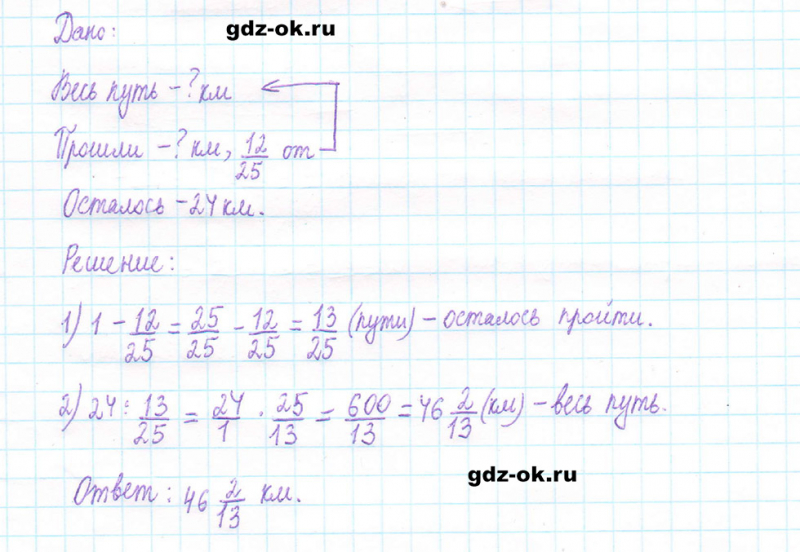 Дано:
gdz-ok.ru
Весь путь - ? км
Прошли - ? км, 12/25 от
Осталось - 24 км.
Решение:
1) 1 - 12/25 = 25/25 - 12/25 = 13/25 (пути) - осталось пройти.
2) 24 : 13/25 = 24/1 · 25/13 = 600/13 = 46 2/13 (км) - весь путь.
gdz-ok.ru
Ответ: 46 2/13 км.